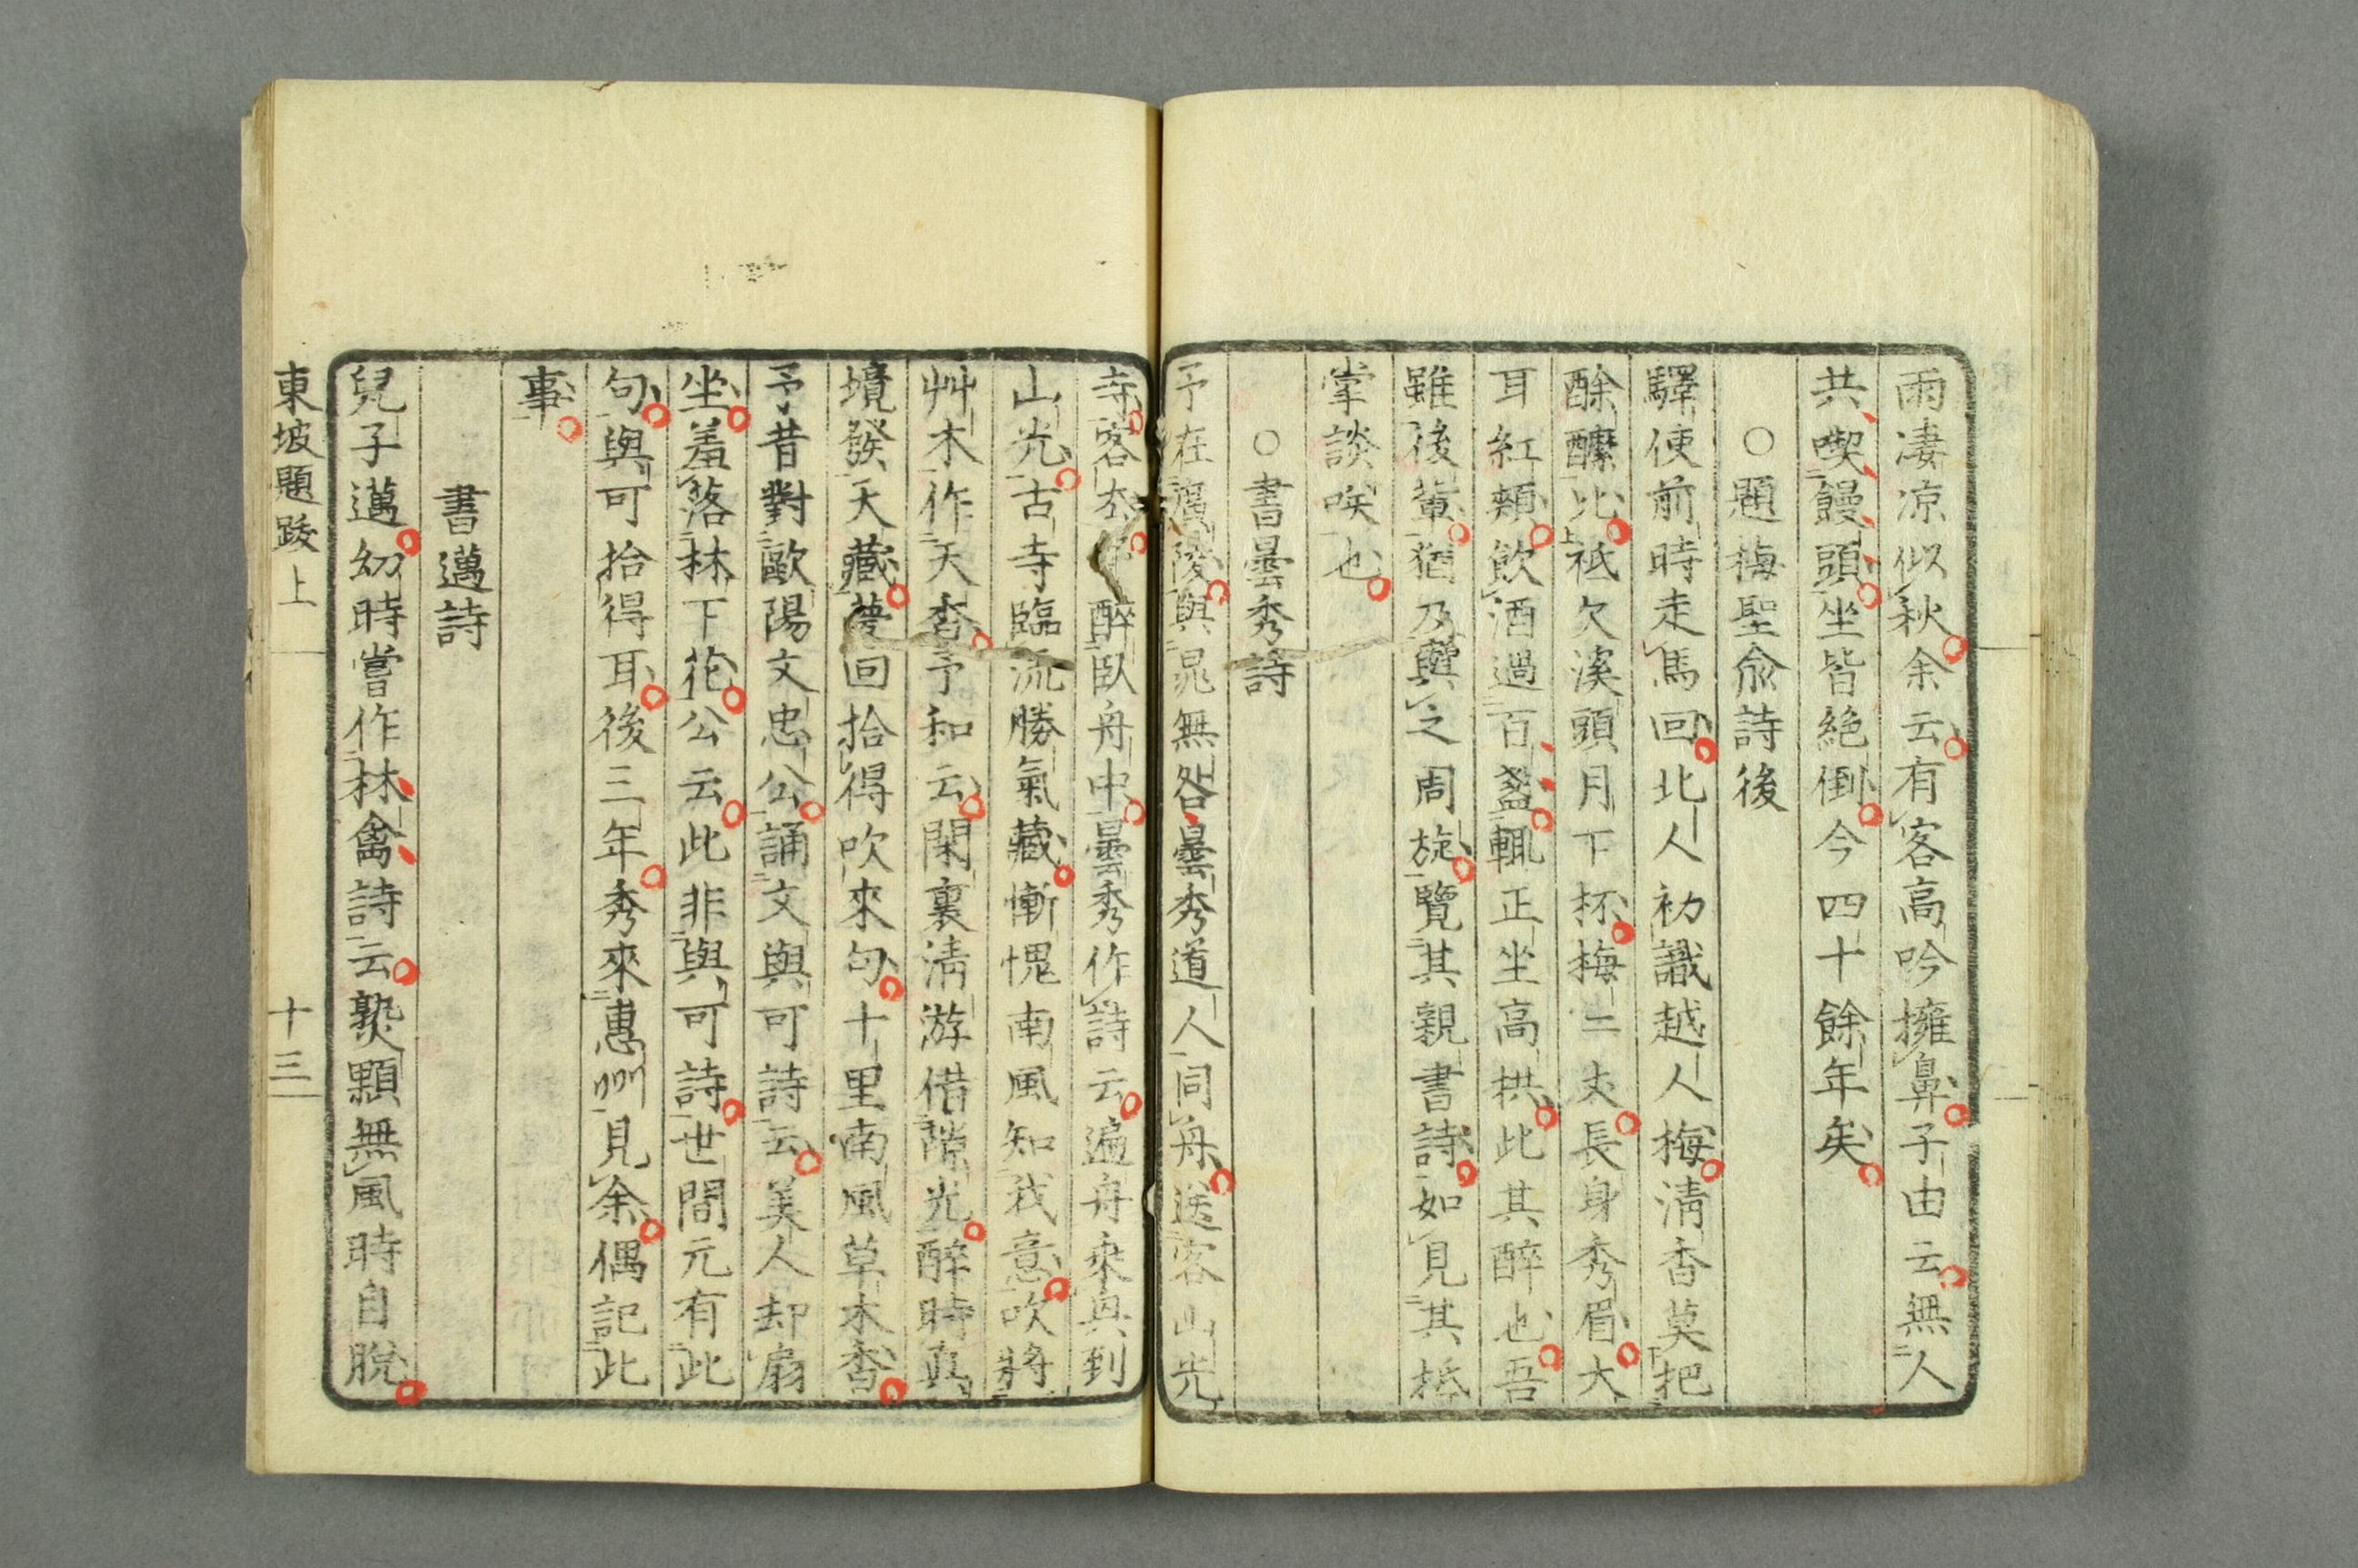 雨凄凉似秋余云有客高吟擁鼻子由云無人
共喫饅頭坐皆絶倒今四十餘年矣
○題梅聖兪詩後
驛使前時走馬回北人初識越人梅清香莫把
酴醾比祗欠溪頭月下杯梅二丈長身秀眉大
耳紅頰飲酒過百盞輒正坐高拱此其醉也吾
雖後輩猶及與之周旋覽其親書詩如見其抵
掌談笑也
○書曇秀詩
予在廣陵與晁無咎曇秀道人同舟送客山光
寺客去醉臥舟中曇秀作詩云扁舟乘興到
山光古寺臨流勝氣藏慚愧南風知我意吹將
艸木作天香予和云閑裏清游借隙光醉時真
境發天藏夢回拾得吹來句十里南風草木香
予昔對歐陽文忠公誦文與可詩云美人却扇
坐羞落林下花公云此非與可詩世間元有此
句與可拾得耳後三年秀來惠州見余偶記此
事
書邁詩
兒子邁幼時嘗作林禽詩云熟顆無風時自脫
東坡題跋上
十三